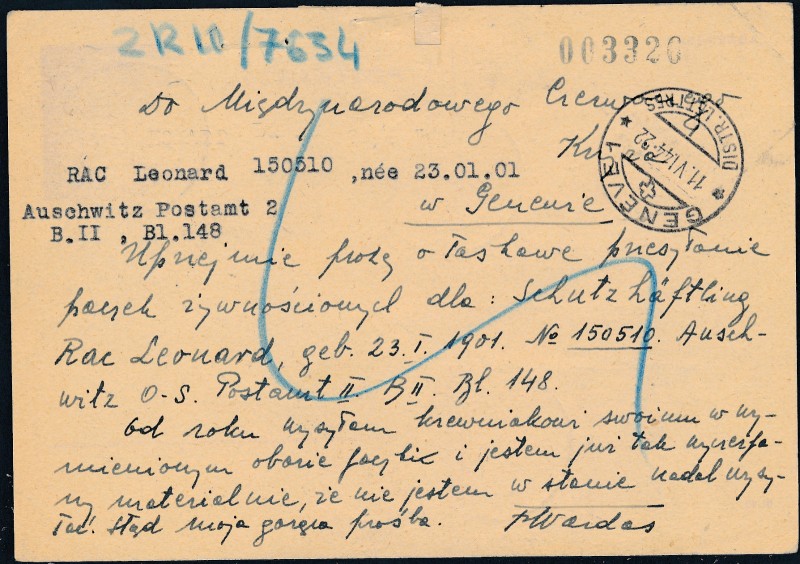 ZR10/7634
003326
Do Międzynarodowego Czerwonego
RÁC Leonard 150510 ,née 23.01.01
w Genewie
Auschwitz Postamt 2
B.II , Bl.148
GENÈVE 1
11.VI.44-22
DISTR. LETTRES
Uprzejmie proszę o łaskawe przesłanie
paczek żywnościowych dla: Schutzhäftling
Rac Leonard, geb. 23.I.1901. No 150510. Ausch-
witz O-S. Postamt II. B II. Bl. 148.
Od roku wysyłam krewniakowi swoimu w wy-
mienionym obozie paczki i jestem już tak wyczerpa-
ny materialnie, że nie jestem w stanie nadal wysy-
łać. Stąd moja gorąca prośba. Wardas